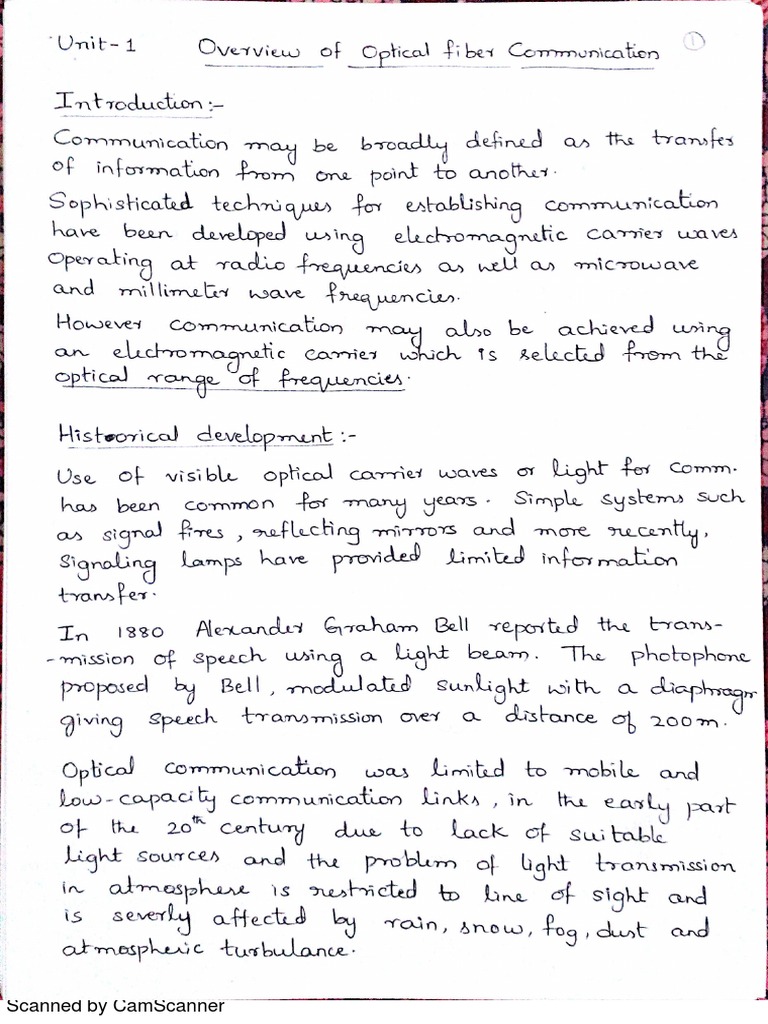 Unit-1 Overview of Optical fiber Communication 1
Introduction :-
Communication may be broadly defined as the transfer
of information from one point to another.
Sophisticated techniques for establishing communication
have been developed using electromagnetic carrier waves
Operating at radio frequencies as well as microwave
and millimeter wave frequencies.
However communication may also be achieved using
an electromagnetic carrier which is selected from the
optical range of frequencies.
Historical development :-
Use of visible optical carrier waves or light for comm.
has been common for many years. Simple systems such
as signal fires, reflecting mirrors and more recently,
Signaling lamps have provided limited information
transfer.
In 1880 Alexander Graham Bell reported the trans-
-mission of speech using a light beam. The photophone
proposed by Bell, modulated sunlight with a diaphragm
giving speech transmission over a distance of 200m.
Optical communication was limited to mobile and
low-capacity communication links, in the early part
of the 20th century due to lack of suitable
light sources and the problem of light transmission
in atmosphere is restricted to line of sight and
is severly affected by rain, snow, fog, dust and
atmospheric turbulance.
Scanned by CamScanner